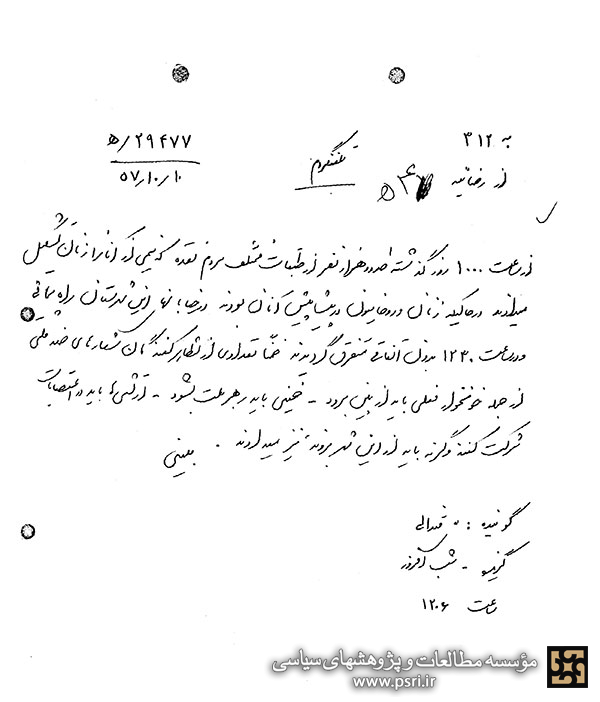 به ۳۱۲
از رضائیه ۵۴
تلفنگرام
۲۹۴۷۷/ه
۵۷/۱۰/۱۰
از ساعت ۱۰۰۰ روز گذشته حدود هزار نفر از طبقات مختلف مردم نقده که نیمی از آنها را زنان تشکیل
میدادند در حالیکه زنان و روحانیون در پیشاپیش آنان بودند در خیابانهای این شهرستان راه پیمائی
و در ساعت ۱۲۳۰ بدون اتفاقی متفرق گردیدند ضمناً تعدادی از تظاهرکنندگان شعارهای ضد ملی
از جمله خونخوار فعلی باید از بین برود - خمینی باید رهبر ملت بشود - ارتشی ها باید در اعتصابات
شرکت کنند وگرنه باید از این شهر بروند، نیز میدادند . معینی
گوینده :
گیرنده - شب افروز
ساعت ۱۲۰۶
مؤسسه مطالعات و پژوهشهای سیاسی
www.psri.ir